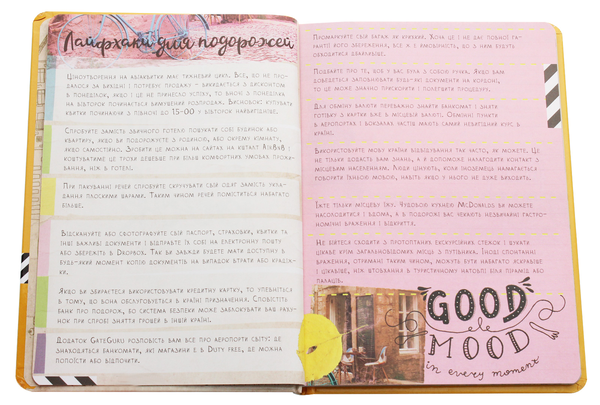 Лайфхаки для подорожей
Ціноутворення на авіаквитки має тижневий цикл. Все, що не про-
далося за вихідні і потребує продажу – викидається з дисконтом
в понеділок, якщо і це не принесло успіху, то вночі з понеділка
на вівторок починається вимушений розпродаж. Висновок: купувати
квитки починаючи з півночі до 15-00 у вівторок найвигідніше.
Спробуйте замість звичного готелю пошукати собі будинок або
квартиру, якщо ви подорожуєте з родиною, або окрему кімнату,
якщо самостійно. Зробити це можна на сайтах на кшталт AirBnB і
коштуватиме це трохи дешевше при більш комфортних умовах прожи-
вання, ніж в готелі.
При пакуванні речей спробуйте скручувати свій одяг замість укла-
дання плоскими шарами. Таким чином речей поміститься набагато
більше.
Відскануйте або сфотографуйте свій паспорт, страховки, квитки та
інші важливі документи і відправте їх собі на електронну пошту
або збережіть в Dropbox. Так ви завжди будете мати доступну в
будь-який момент копію документів на випадок втрати або крадіж-
ки.
Якщо ви збираєтеся використовувати кредитну картку, то упевніться
в тому, що вона обслуговується в країні призначення. Сповістіть
банк про подорож, бо система безпеки може заблокувати ваш раху-
нок при спробі зняття грошей в іншій країні.
Додаток GateGuru розповість вам все про аеропорти світу: де
знаходяться банкомати, які магазини є в Duty Free, де можна
попоїсти або відпочити.
Промаркуйте свій багаж як крихкий. Хоча це і не дає повної га-
рантії його збереження, все ж є ймовірність, що з ним будуть
обходитися дбайливіше.
Подбайте про те, щоб у вас була з собою ручка. Якщо вам
доведеться заповнювати будь-які документи на кордоні,
то це може значно прискорити і полегшити процедуру.
Для обміну валюти переважно знайти банкомат і зняти
готівку з картки вже в місцевій валюті. Обмінні пункти
в аеропортах і вокзалах часто мають самий невигідний курс в
країні.
Використовуйте мову країни відвідування так часто, як можете. Це
не тільки додасть вам знань, а й допоможе налагодити контакт з
місцевим населенням. Люди цінують, коли іноземець намагається
говорити їхньою мовою, навіть якщо у нього не дуже виходить.
Їжте тільки місцеву їжу. Чудовою кухнею McDonalds ви можете
насолодитися і вдома, а в подорожі вас чекають незвичайні гастро-
номічні враження і відкриття.
Не бійтеся сходити з протоптаних екскурсійних стежок і шукати
цікаве крім загальновідомих місць з путівника. Іноді спонтанні
враження, отримані таким чином, можуть бути набагато яскравіше
і цікавіше, ніж штовхання в туристичному натовпі біля пірамід або
палаців.
GOOD
MOOD
in every moment